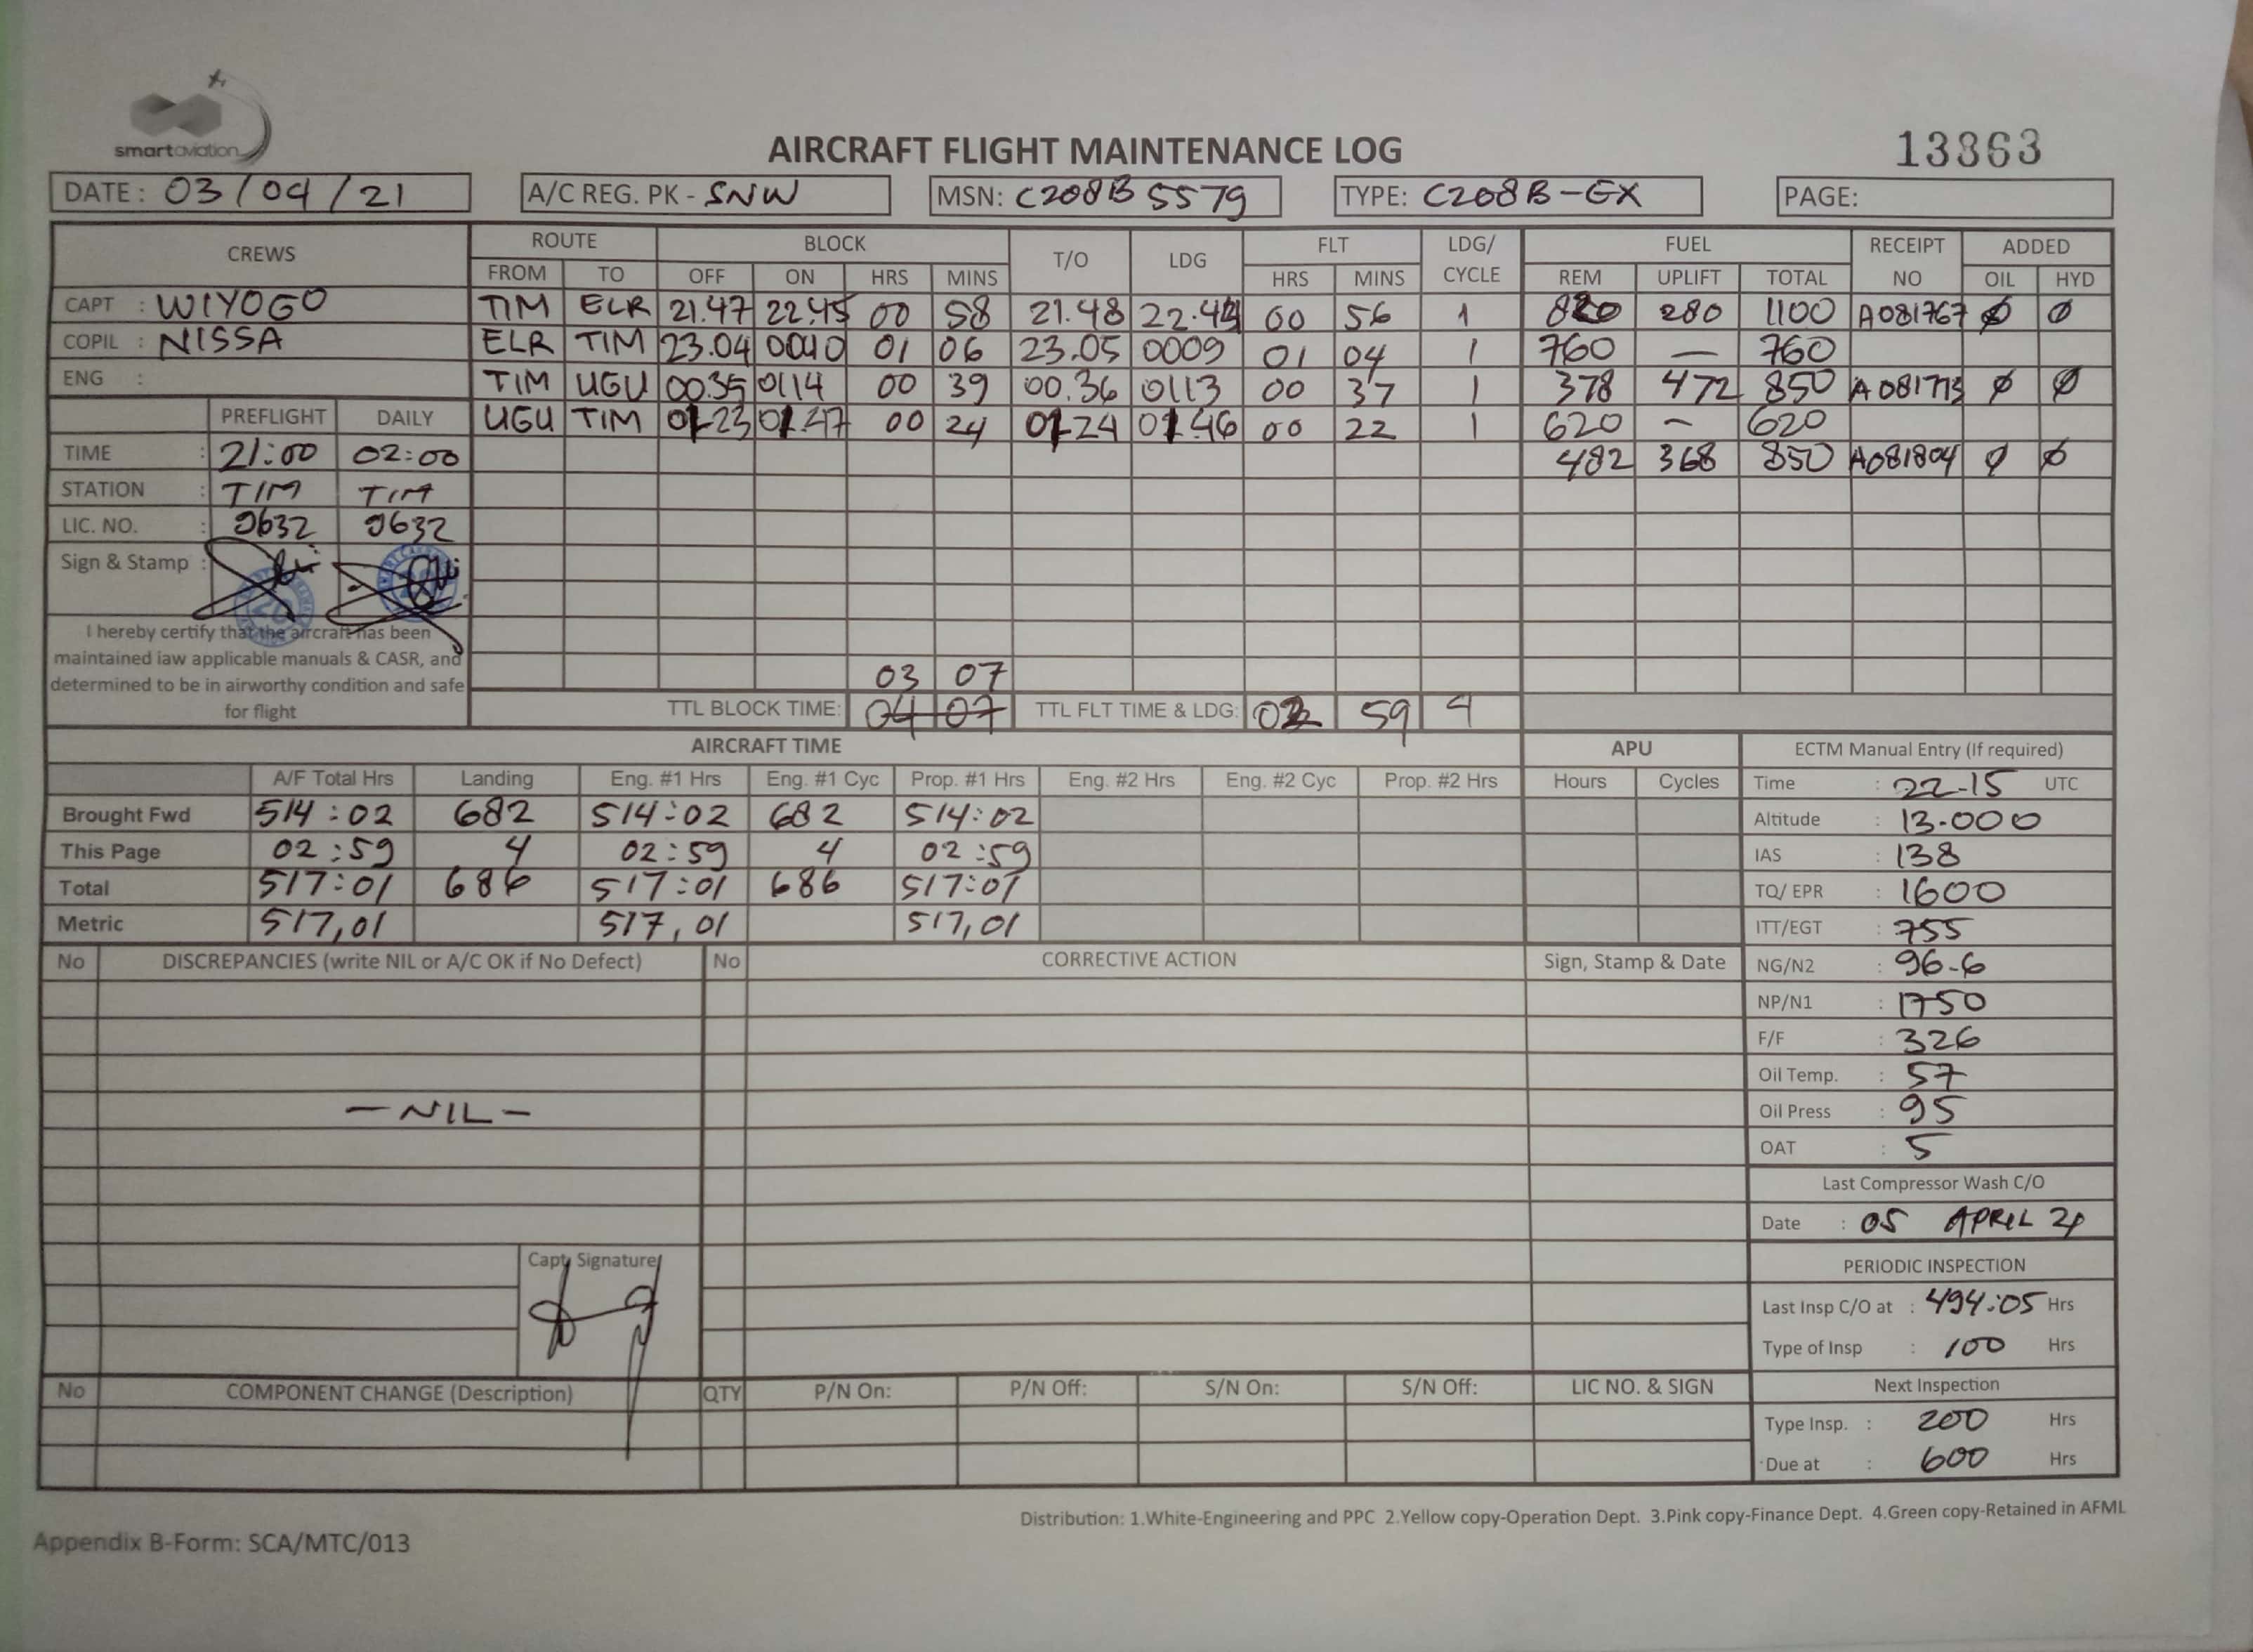 smartaviation
AIRCRAFT FLIGHT MAINTENANCE LOG
13863
DATE : 03/04/21 A/C REG. PK - SNW MSN: C208B 5579 TYPE: C208B-EX PAGE:
CREWS ROUTE BLOCK T/O LDG FLT LDG/ CYCLE FUEL RECEIPT NO ADDED
FROM TO OFF ON HRS MINS HRS MINS REM UPLIFT TOTAL OIL HYD
CAPT : WIYOGO TIM ELR 21.47 22.45 00 58 21.48 22.44 00 56 1 820 280 1100 A081767 Ø Ø
COPIL : NISSA ELR TIM 23.04 0010 01 06 23.05 0009 01 04 1 760 — 760
ENG : TIM UGU 00.35 0114 00 39 00.36 0113 00 37 1 378 472 850 Ø Ø
PREFLIGHT DAILY UGU TIM 01.23 01.47 00 24 01.24 01.46 00 22 1 620 - 620
TIME : 21:00 02:00 482 368 850 A081804 Ø Ø
STATION : TIM TIM
LIC. NO. : 9632 9632
Sign & Stamp :
I hereby certify that the aircraft has been
maintained iaw applicable manuals & CASR, and
determined to be in airworthy condition and safe
for flight
03 07
TTL BLOCK TIME: 04 07 TTL FLT TIME & LDG: 02 59 4
AIRCRAFT TIME APU ECTM Manual Entry (If required)
A/F Total Hrs Landing Eng. #1 Hrs Eng. #1 Cyc Prop. #1 Hrs Eng. #2 Hrs Eng. #2 Cyc Prop. #2 Hrs Hours Cycles Time : 22.15 UTC
Brought Fwd 514:02 682 514:02 682 514:02 Altitude : 13.000
This Page 02:59 4 02:59 4 02:59 IAS : 138
Total 517:01 686 517:01 686 517:01 TQ/ EPR : 1600
Metric 517,01 517,01 517,01 ITT/EGT : 755
No DISCREPANCIES (write NIL or A/C OK if No Defect) No CORRECTIVE ACTION Sign, Stamp & Date NG/N2 : 96.6
NP/N1 : 1750
F/F : 326
Oil Temp. : 57
— NIL — Oil Press : 95
OAT : 5
Last Compressor Wash C/O
Date : 05 APRIL 21
Capt Signature
PERIODIC INSPECTION
Last Insp C/O at : 494:05 Hrs
Type of Insp : 100 Hrs
No COMPONENT CHANGE (Description) QTY P/N On: P/N Off: S/N On: S/N Off: LIC NO. & SIGN Next Inspection
Type Insp. : 200 Hrs
Due at : 600 Hrs
Distribution: 1.White-Engineering and PPC 2.Yellow copy-Operation Dept. 3.Pink copy-Finance Dept. 4.Green copy-Retained in AFML
Appendix B-Form: SCA/MTC/013